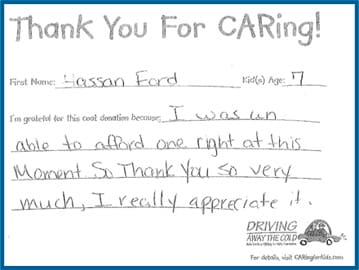 Thank You For CARing!
First Name: Hassan Ford Kid(s) Age: 7
I'm grateful for this coat donation because: I was un
able to afford one right at this
Moment So Thank You so very
much, I really appreciate it.
DRIVING
AWAY THE COLD
For details, visit CARingforKids.com